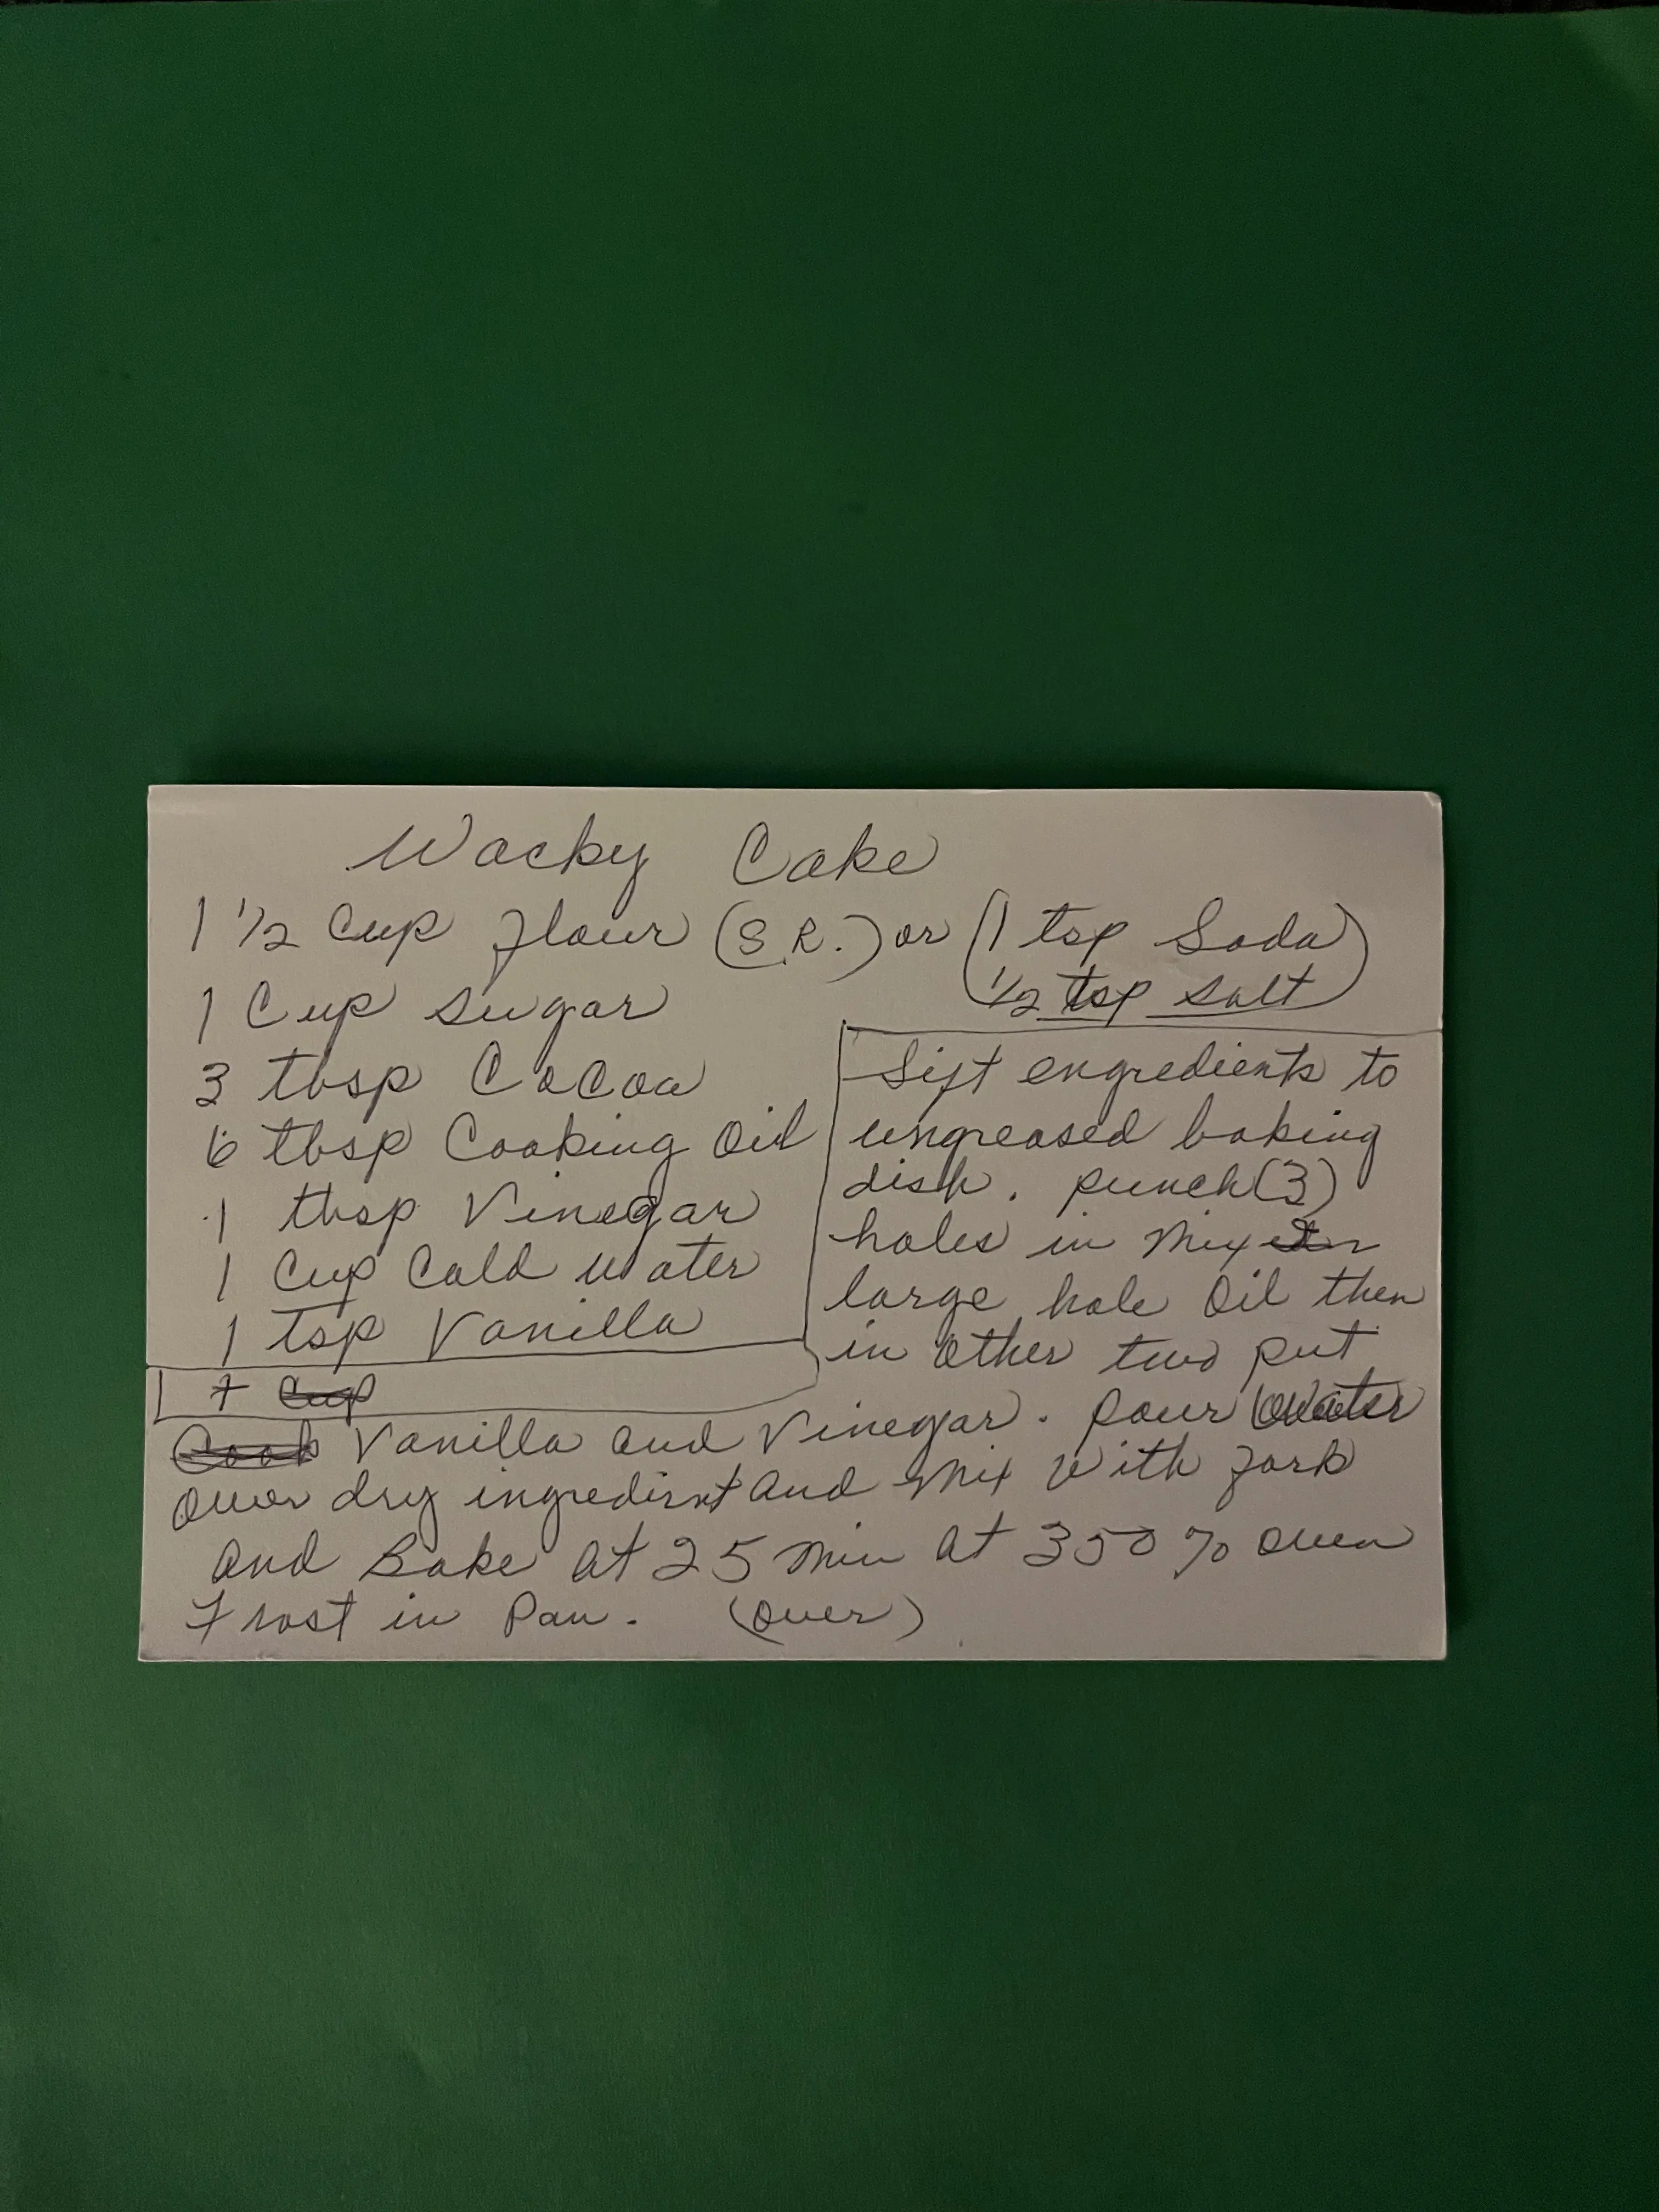 Wacky Cake
1 1/2 Cup flour (S.R.) or (1 tsp Soda
1/2 tsp salt)
1 Cup sugar
3 tbsp Cocoa
6 tbsp Cooking Oil
1 tbsp Vinegar
1 Cup Cold water
1 tsp Vanilla
Sift engredients to
ungreased baking
dish. punch (3)
holes in Mix
large hole Oil then
in other two put
Vanilla and Vinegar. pour water
over dry ingredient and mix with fork
and Bake at 25 min at 350% oven
Frost in Pan. (over)